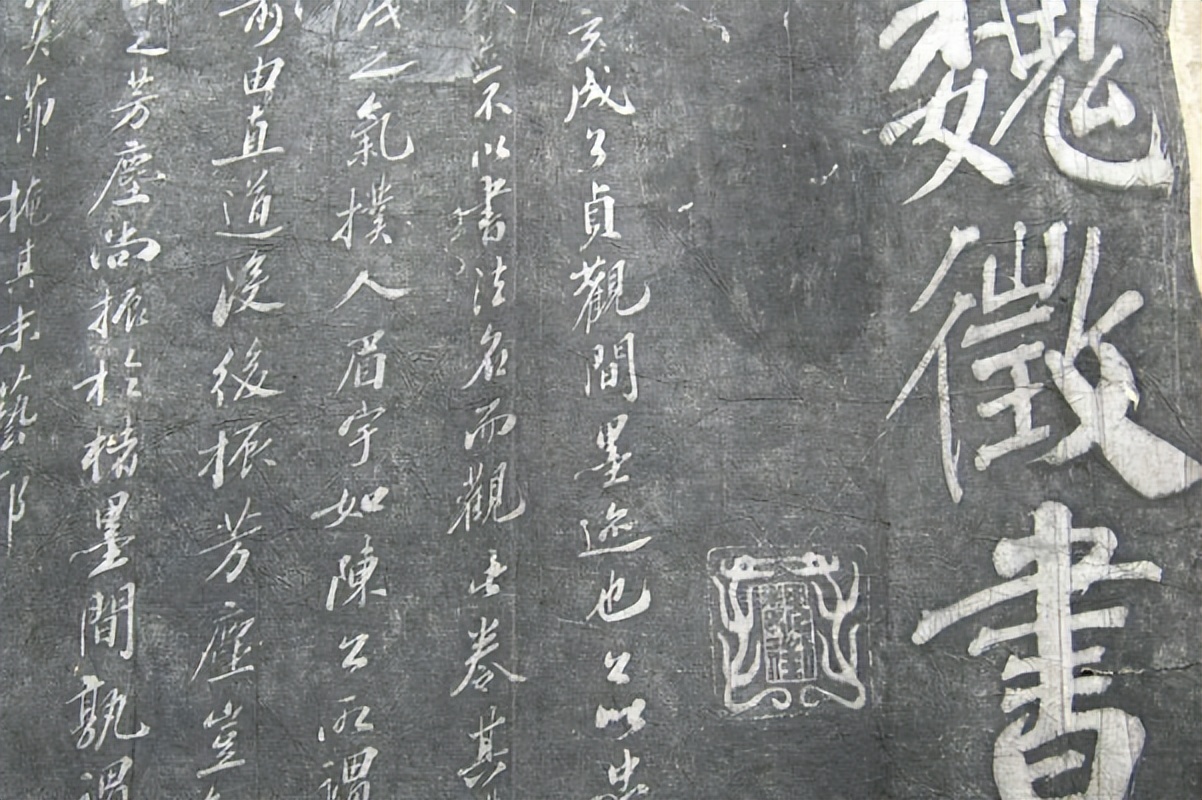 魏徵書
亥成公貞觀間墨迹也公以忠
不以書法名而觀此卷其
之氣撲人眉宇如陳公所謂
前由直道浚後振芳塵豈
之芳塵尚振於楮墨間孰謂
節掩其末藝耶